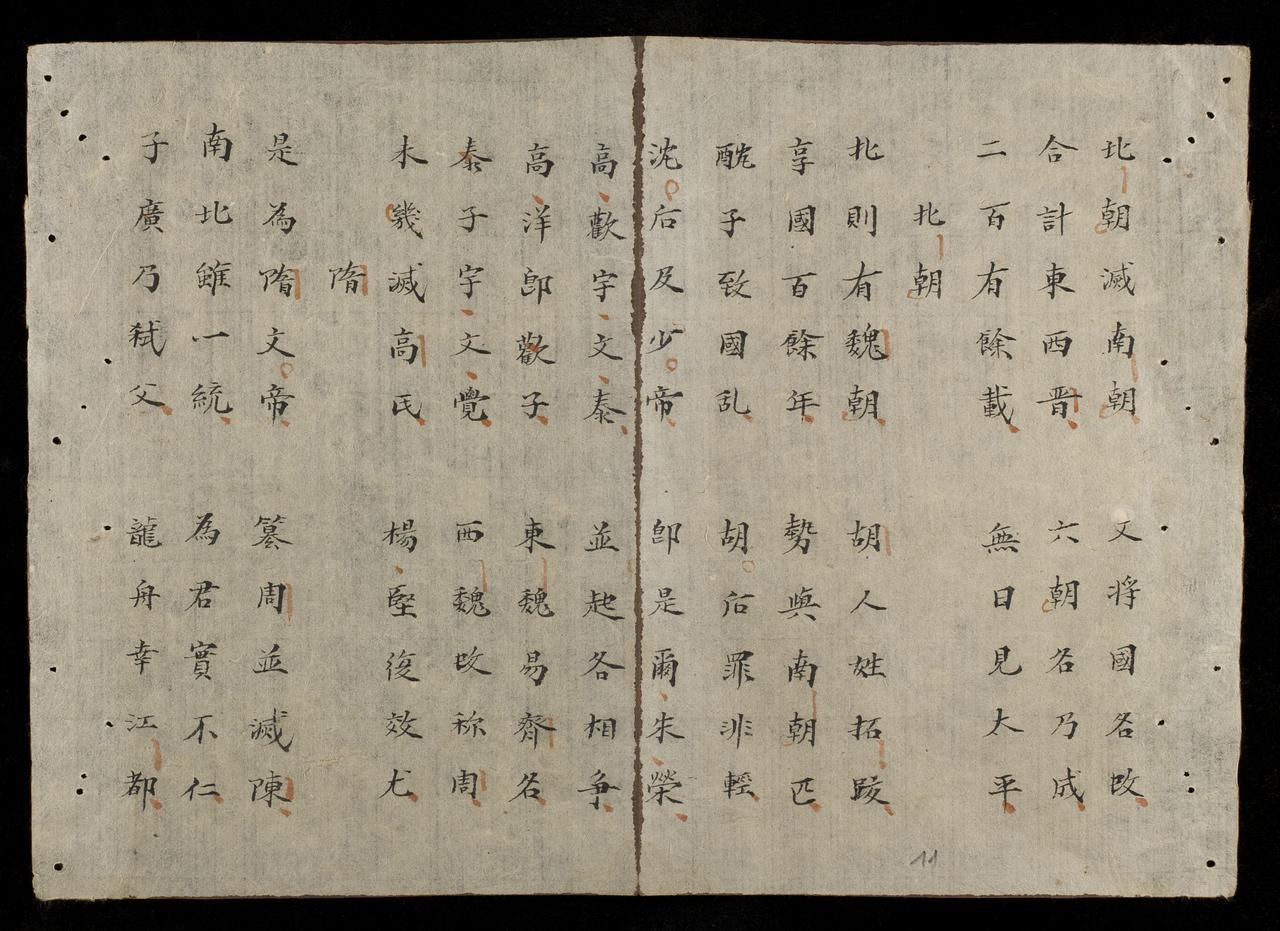 北朝滅南朝 又将國名改
合計東西晋 六朝名乃成
二百有餘載 無日見太平
北朝
北則有魏朝 胡人姓拓跋
享國百餘年 勢與南朝匹
酖子致國乱 胡后罪非輕
沈后及少帝 即是爾朱榮
高歡宇文泰 並起各相争
高洋即歡子 東魏易齊名
泰子宇文覺 西魏改称周
未幾滅高氏 楊堅復效尤
隋
是為隋文帝 篡周並滅陳
南北雖一統 為君實不仁
子廣乃弒父 龍舟幸江都
11